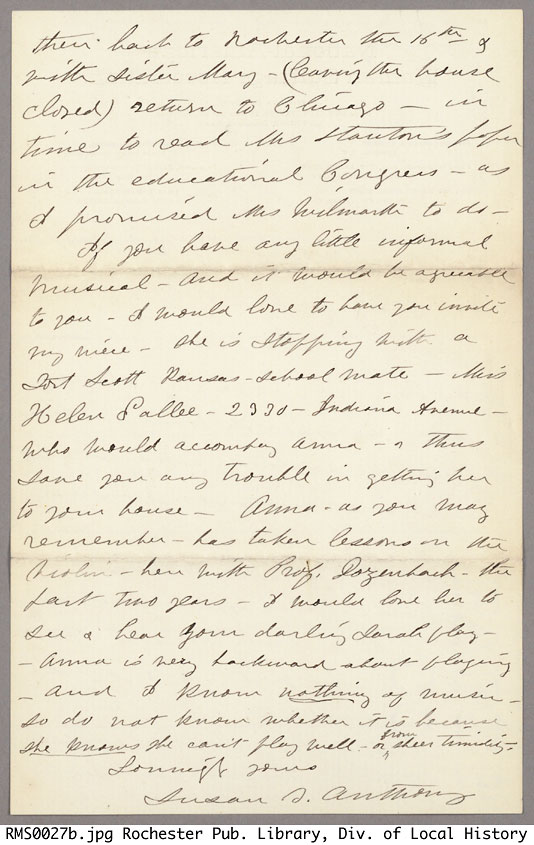 then back to Rochester the 16th &
with sister Mary - (leaving the house
closed) return to Chicago - in
time to read Mrs Stanton's paper
in the educational Congress - as
I promised Mrs Wilmarth to do -
If you have any little informal
musical - and it would be agreeable
to you - I would love to have you invite
my niece - she is stopping with a
Fort Scott Kansas - school mate - Miss
Helen Sallee - 2330 - Indiana Avenue -
who would accompany Anna - & thus
save you any trouble in getting her
to your house - Anna - as you may
remember - has taken lessons on the
violin - here with Prof. - the
last two years - I would love her to
see & hear your darling Sarah play -
- Anna is very backward about playing
- and I know nothing of music -
so do not know whether it is because
she knows she can't play well - or from sheer timidity -
Lovingly yours
Susan B. Anthony
RMS0027b.jpg Rochester Pub. Library, Div. of Local History